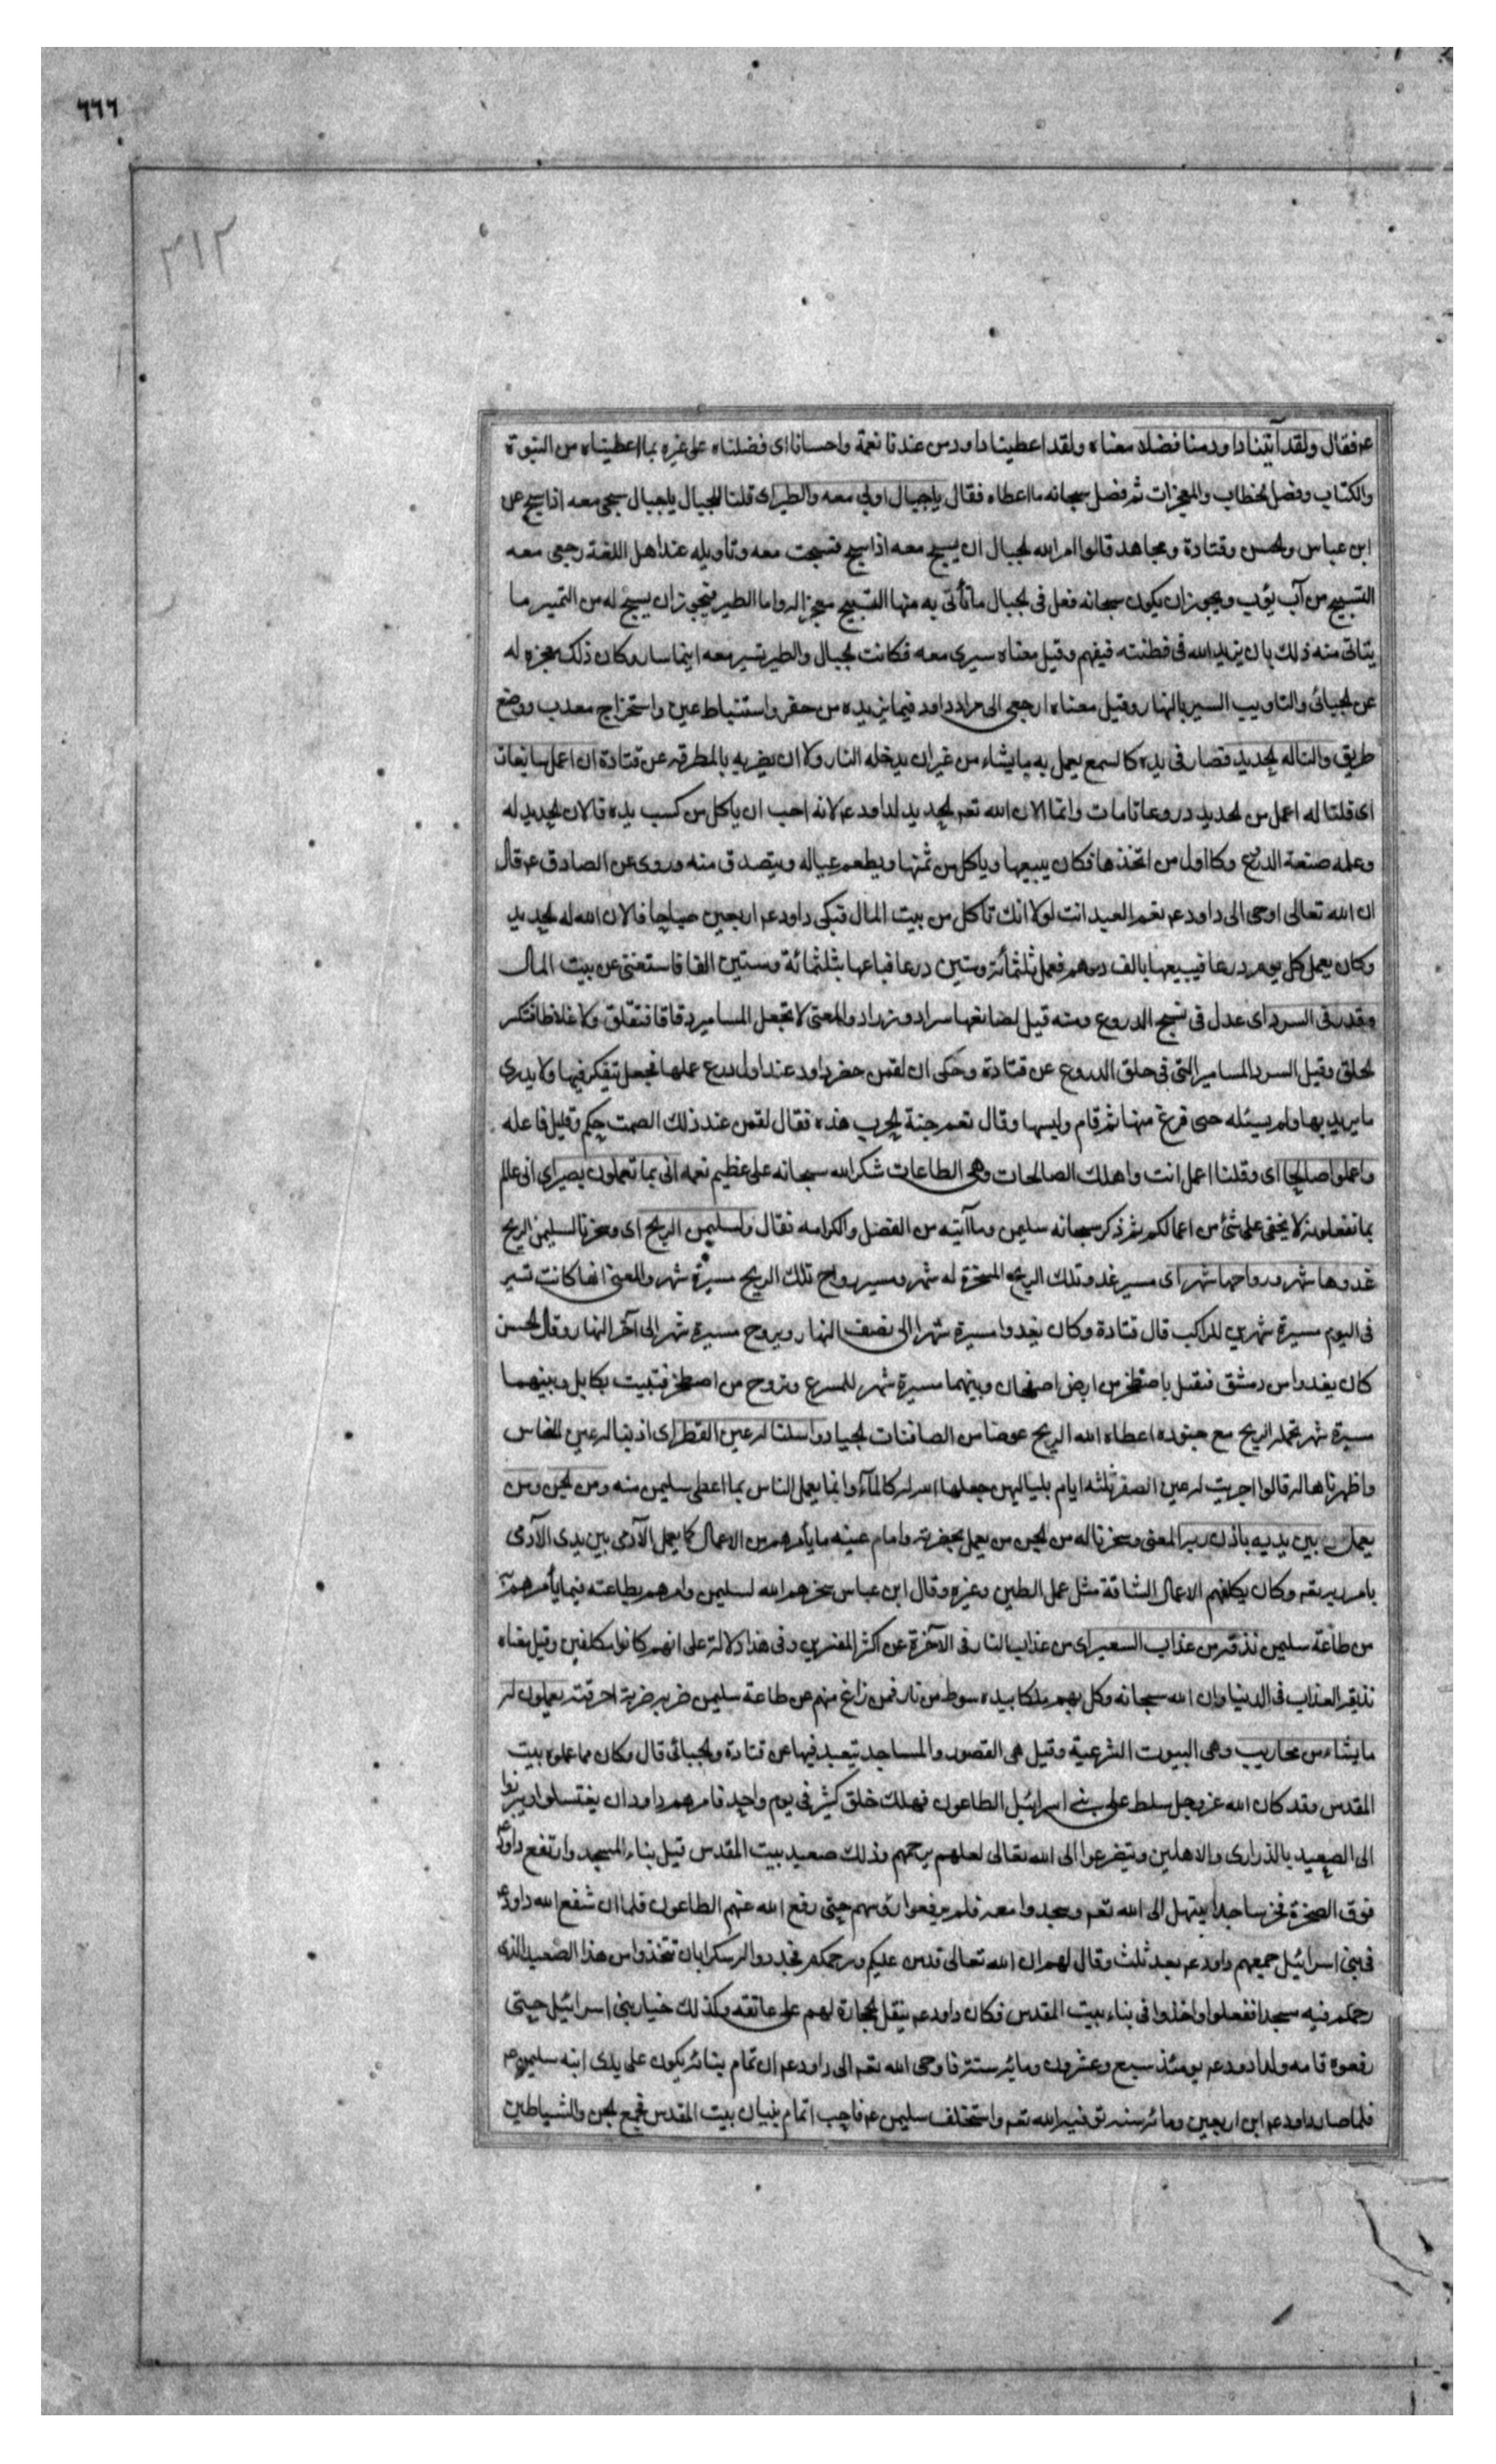 ٦٦٦
٣١٢
عم فقال ولقد آتينا داود منا فضلا معناه ولقد اعطينا داود من عندنا نعمة واحسانا اى فضلناه على غيره بما اعطيناه من النبوة
والكتاب وفصل لخطاب والمعجزات ثم فصل سبحانه ما اعطاه فقال ياجبال اوبي معه والطير اى قلنا للجبال ياجبال سبحى معه اذا سبح عن
ابن عباس ولحسن وقتادة ومجاهد قالوا امر الله لجبال ان يسبح معه اذا سبح فسبحت معه وتاويله عند اهل اللغة رجعى معه
التسبيح من آب يؤب ويجوز ان يكون سبحانه فعل فى لجبال ما تأتى به منها التسبيح معجزا له واما الطير فيجوز ان يسبح له من التميير ما
يتاتى منه ذلك بان يزيد الله فى فطنته فيفهم وقيل معناه سيرى معه فكانت لجبال والطير تسير معه اينما سار وكان ذلك معجزه له
عن لجبائى والتاويب السير بالنهار وقيل معناه ارجعى الى مراد داود فيما يريده من حفر واستنباط عين واستخراج معدن ووضع
طريق والنا له لحديد فصار فى يده كالسمع يعمل به ما يشاء من غير ان يدخله النار ولا ان يضربه بالمطرقه عن قتادة ان اعمل سابغات
اى قلنا له اعمل من لحديد دروعا تامات وانما الان الله تعم لحديد لداود عم لانه احب ان ياكل من كسب يده فالان لحديد له
وعلمه صنعة الدرع وكا اول من اتخذها فكان يبيعها وياكل من ثمنها ويطعم عياله ويتصدق منه وروى عن الصادق عم قال
ان الله تعالى اوحى الى داود عم نعم العبد انت لولا انك تاكل من بيت المال فبكى داود عم اربعين صباحا فالان الله له لحديد
وكان يعمل كل يوم درعا فيبيعها بالف درهم فعمل ثلثمائة وستين درعا فباعها بثلثمائة وستين الفا فاستغنى عن بيت المال
وقدر فى السرد اى عدل فى نسج الدروع ومنه قيل لصانعها سراد وزراد والمعنى لا تجعل المسامير دقاقا فتفلق ولا غلاظا فتكسر
لحلق وقيل السرد المسامير التى فى حلق الدروع عن قتادة وحكى ان لقمن حضر داود عند اول درع عملها فجعل تتفكر فيها ولا يدرى
ما يريد بها ولم يسئله حتى فرغ منها ثم قام ولبسها وقال نعم جنة لحرب هذه فقال لقمن عند ذلك الصمت حكم وقليل فاعله
واعملوا صالحا اى وقلنا اعمل انت واهلك الصالحات وهى الطاعات شكرا لله سبحانه على عظيم نعمه انى بما تعملون بصير اى انى عالم
بما تفعلونه لا يخفى على شئ من اعمالكم ثم ذكر سبحانه سليمن وما آتيه من الفضل والكرامه فقال ولسليمن الريح اى وسخرنا لسليمن الريح
غدوها شهر ورواحها شهر اى مسير غدو تلك الريح المسخرة له شهر ومسير رواح تلك الريح مسيرة شهر والمعنى انها كانت تسير
فى اليوم مسيرة شهرين للراكب قال قتادة وكان يغدوا مسيرة شهر الى نصف النهار ويروح مسيرة شهر الى آخر النهار وقال لحسن
كان يغدوا من دمشق فيقيل باصطخر من ارض اصفهان وبينهما مسيرة شهر للمسرع وتروح من اصطخر فتبيت بكابل وبينهما
مسيرة شهر تحمله الريح مع جنوده اعطاه الله الريح عوضا من الصافنات لجياد واسلنا له عين القطر اى اذبنا له عين النحاس
واظهرناها له قالوا اجريت له عين الصفر ثلثه ايام بلياليهن جعلها الله له كالمآء وانما يعمل الناس بما اعطى سليمن منه ومن لجن من
يعمل بين يديه باذن ربه المعنى وسخرنا له من لجن من يعمل بحضرته وامام عينه ما يأمرهم من الاعمال كما يعمل الآدمى بين يدى الآدمى
بامر ربه تعم وكان يكلفهم الاعمال الشاقة مثل عمل الطين وغيره وقال ابن عباس سخرهم الله لسليمن وامرهم بطاعته فيما يأمرهم
من طاعة سليمن نذقه من عذاب السعير اى من عذاب النار فى الآخرة عن اكثر المفسرين وفى هذا دلالة على انهم كانوا مكلفين وقيل معناه
نذيقه العذاب فى الدنيا وان الله سبحانه وكل بهم ملكا بيده سوط من نار فمن زاغ منهم عن طاعة سليمن ضربه ضربة احرقته يعملون له
ما يشاء من محاريب وهى البيوت الشرعية وقيل هى القصور والمساجد يتعبد فيها عن قتادة ولجبائى قال وكان مما عملوه بيت
المقدس وقد كان الله عز وجل سلط على بنى اسرائيل الطاعون فهلك خلق كثير فى يوم واحد فامرهم داود ان يغتسلوا ويبرزوا
الى الصعيد بالذرارى والاهلين ويتضرعوا الى الله تعالى لعلهم يرحمهم وذلك صعيد بيت المقدس قبل بناء المسجد وارتفع داود
فوق الصخرة فخر ساجدا يبتهل الى الله تعم وسجدوا معه فلم يرفعوا رؤسهم حتى رفع الله عنهم الطاعون فلما ان شفع الله داود
فى بنى اسرائيل جمعهم داود عم بعد ثلث وقال لهم ان الله تعالى قد من عليكم ورحمكم فجددوا له شكرا بان تتخذوا من هذا الصعيد الذى
رحمكم فيه مسجدا ففعلوا واخذوا فى بناء بيت المقدس فكان داود عم ينقل لحجارة لهم على عاتقه وكذلك خيار بنى اسرائيل حتى
رفعوه قامه ولداود عم يومئذ سبع وعشرون ومائة سنة فاوحى الله تعم الى داود عم ان تمام بنائه يكون على يدى ابنه سليمن عم
فلما صار داود عم ابن اربعين ومائة سنه توفيه الله تعم واستخلف سليمن عم فاحب اتمام بنيان بيت المقدس فجمع لجن والشياطين